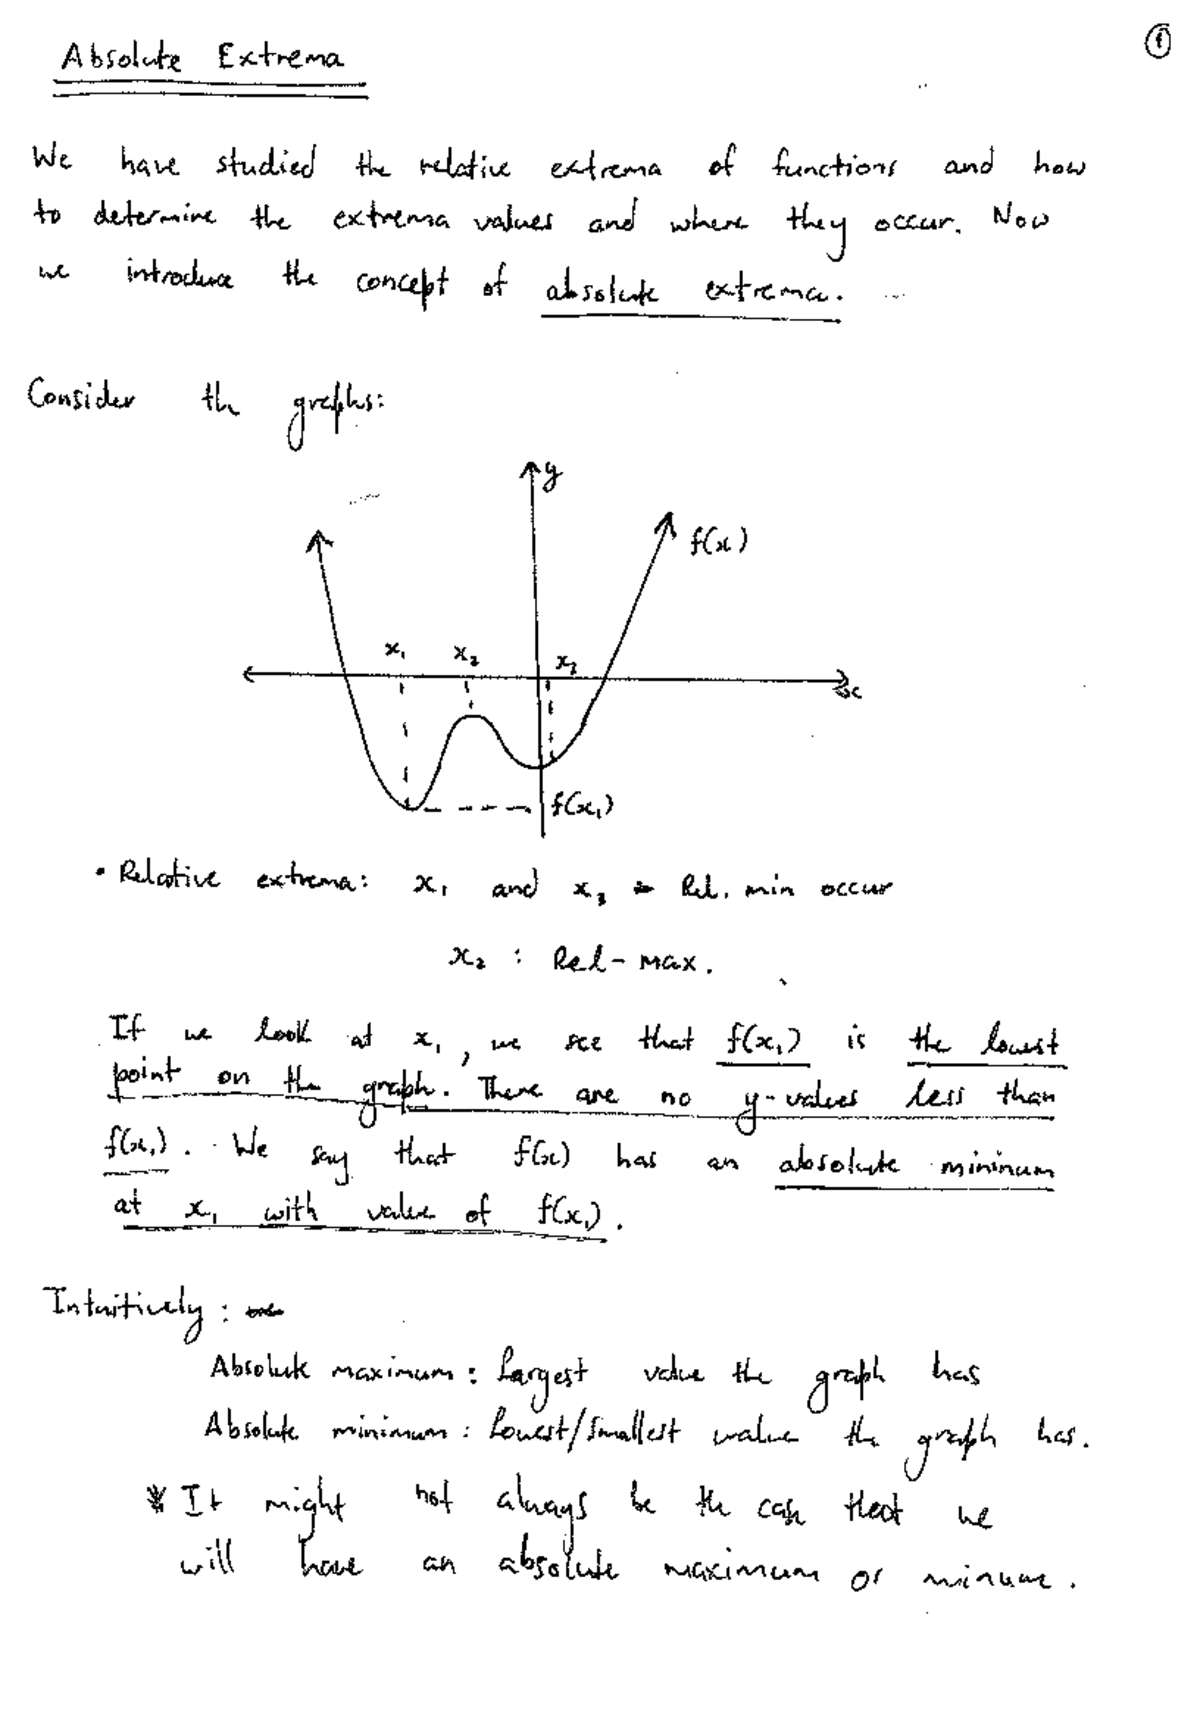 ①
Absolute Extrema
We have studied the relative extrema of functions and how
to determine the extrema values and where they occur. Now
we introduce the concept of absolute extrema.
Consider the graphs:
y
f(x)
x₁ x₂ x₃
x
f(x₁)
• Relative extrema: x₁ and x₃ = Rel. min occur
x₂ : Rel-max.
If we look at x₁, we see that f(x₁) is the lowest
point on the graph. There are no y-values less than
f(x₁). We say that f(x) has an absolute mininum
at x₁ with value of f(x₁).
Intuitively:
Absolute maximum: Largest value the graph has
Absolute minimum: Lowest/Smallest value the graph has.
* It might not always be the case that we
will have an absolute maximum or